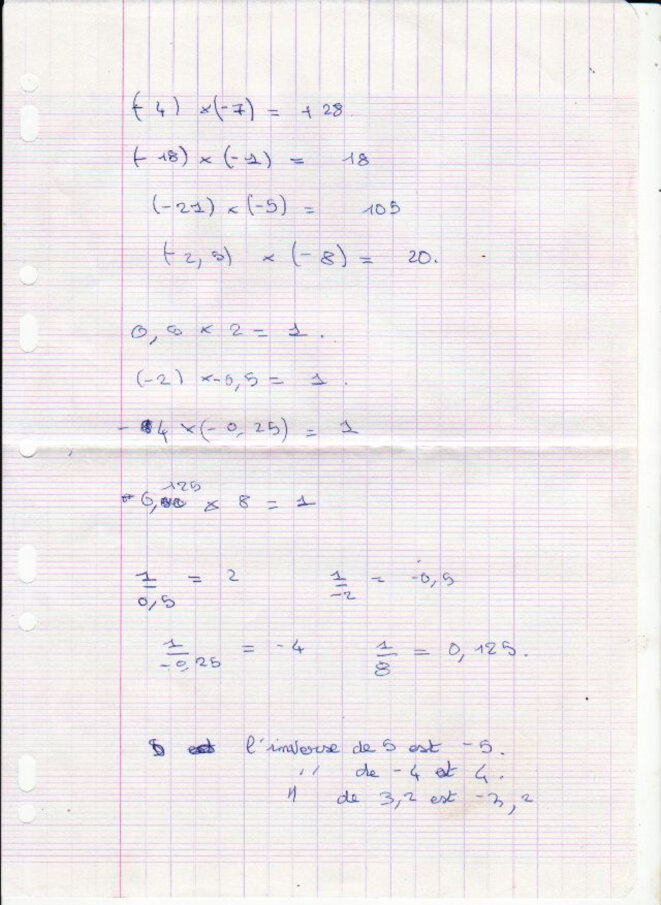 (-4) ×(-7) = +28
(-18) × (-1) = 18
(-21) × (-5) = 105
(-2,5) × (-8) = 20.
0,5 × 2 = 1.
(-2) ×-0,5 = 1.
-4 ×(-0,25) = 1
0,125 × 8 = 1
1/0,5 = 2 1/-2 = -0,5
1/-0,25 = -4 1/8 = 0,125.
l'inverse de 5 est -5.
,, de -4 est 4.
" de 3,2 est -3,2